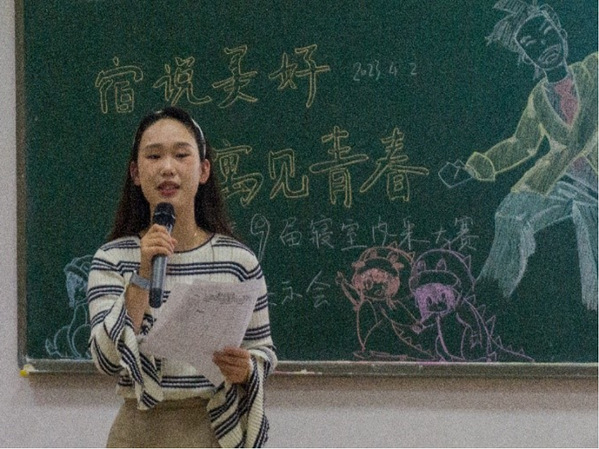 宿说美好 2023.4.2
寓见青春
届寝室风采大赛
示会